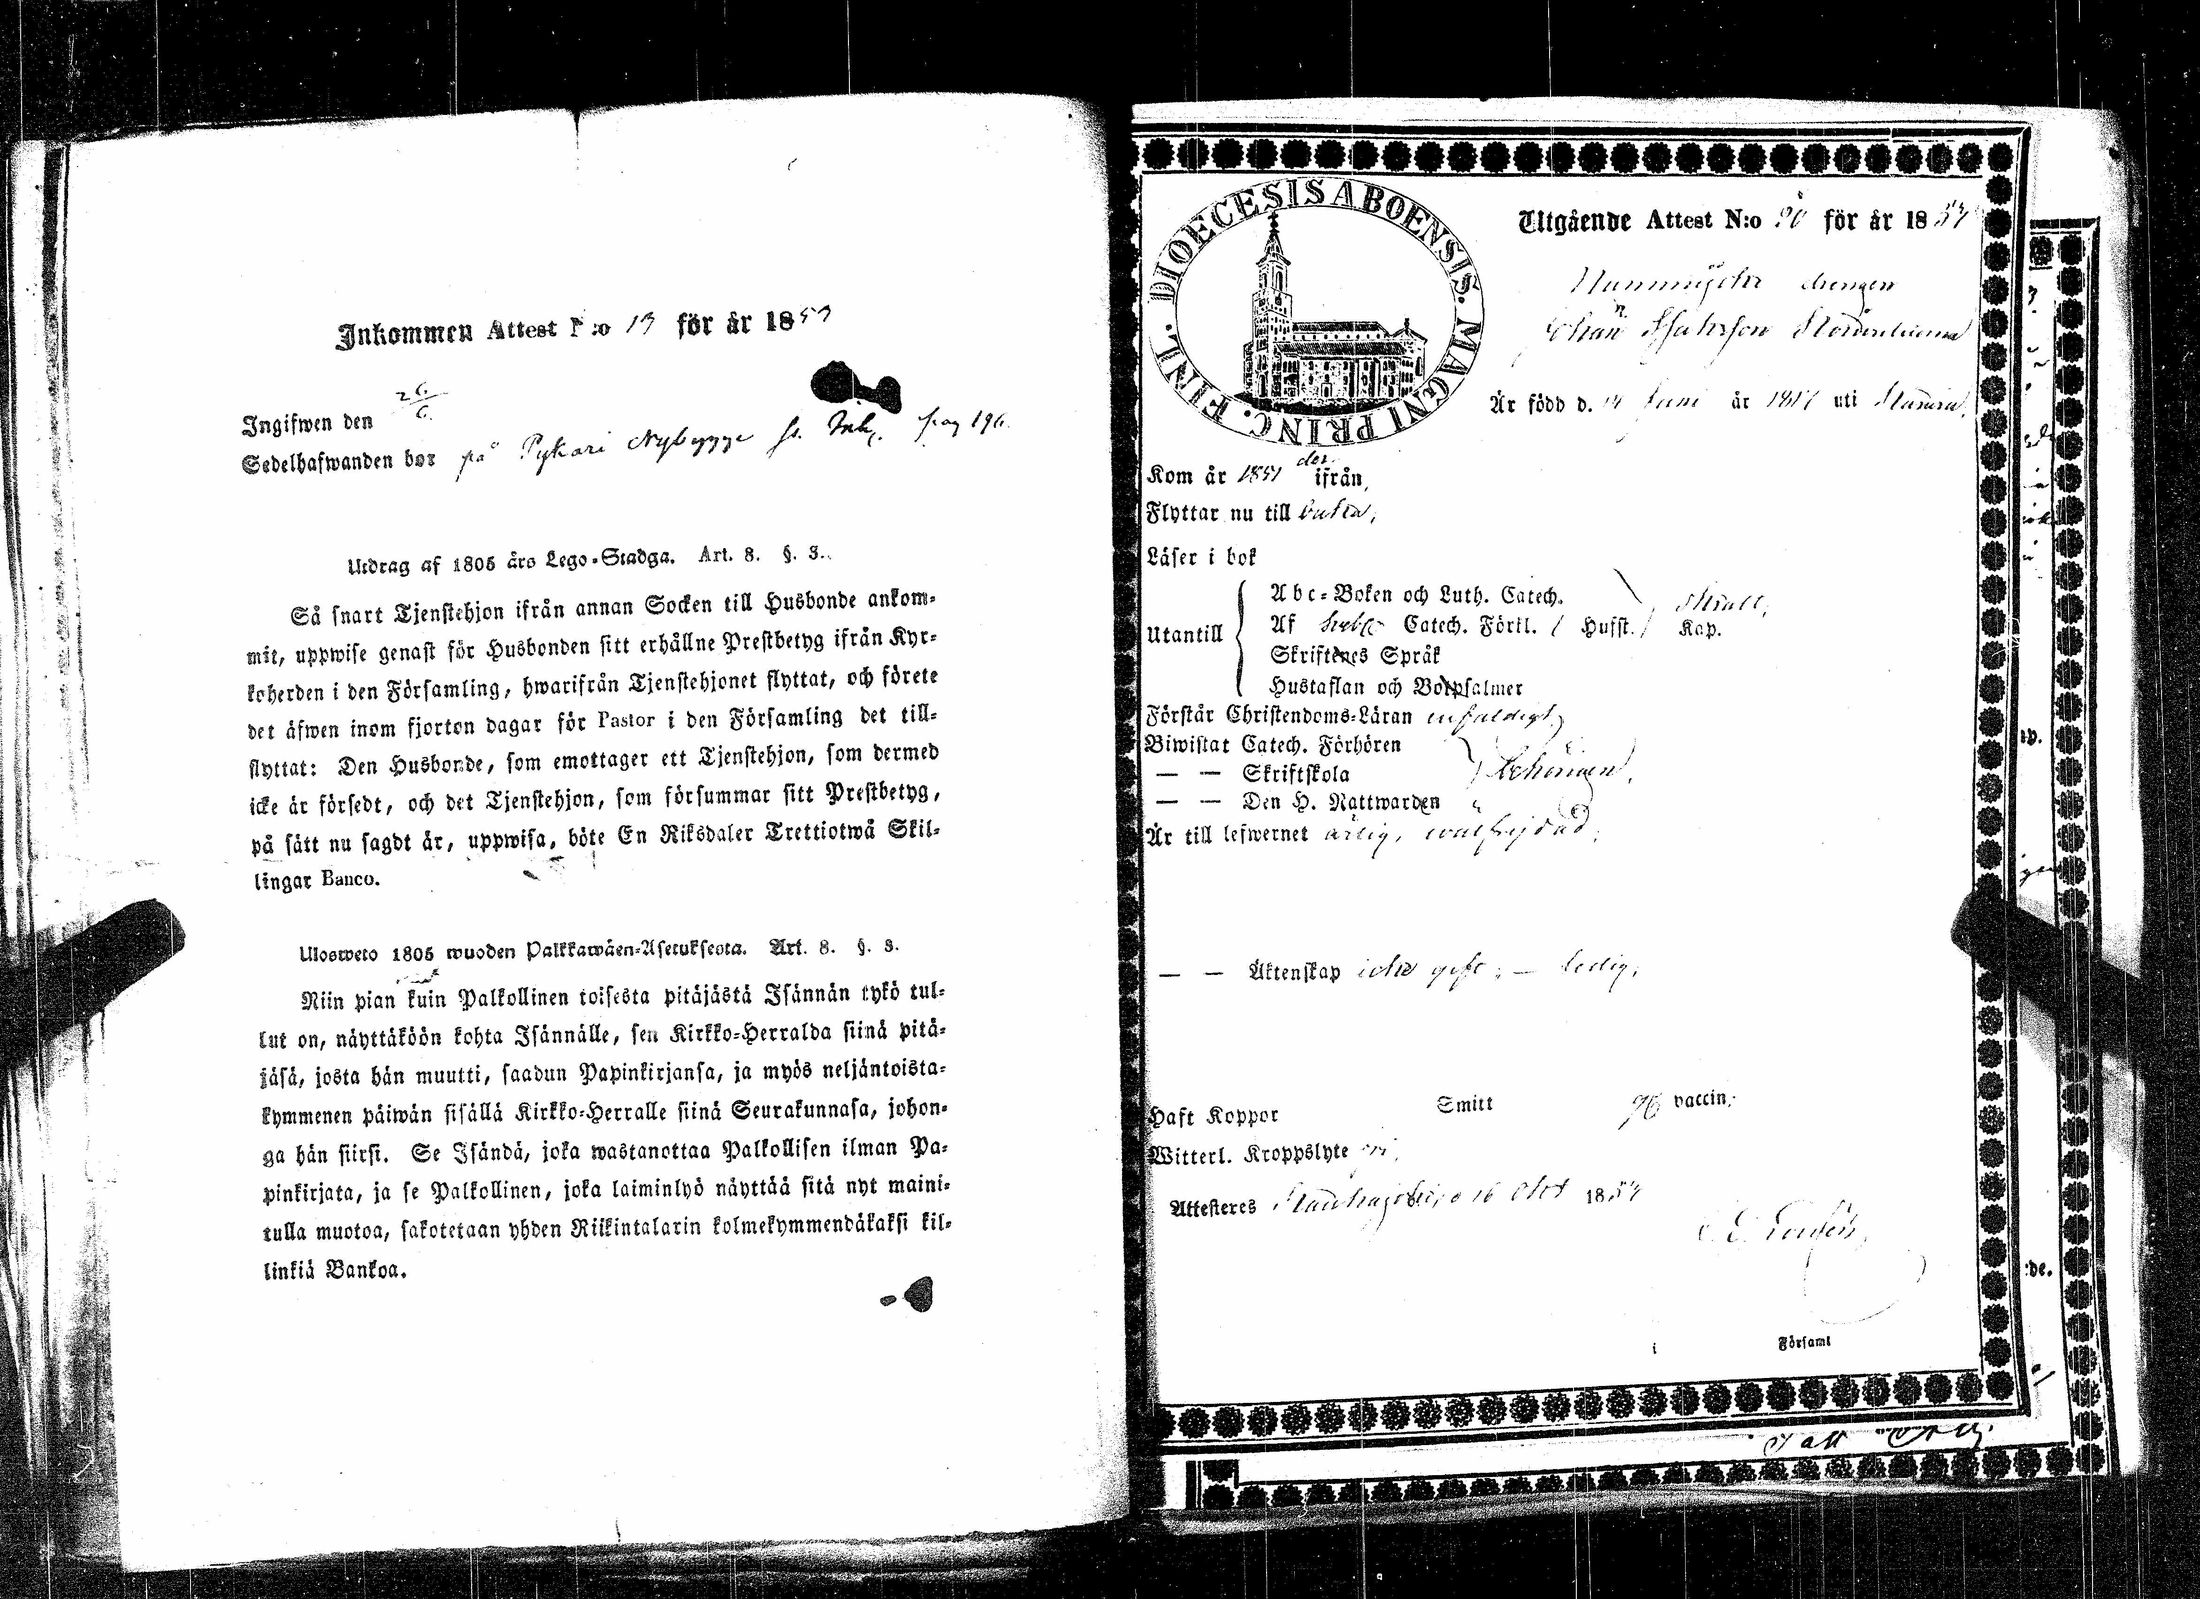 Inkommen Attest N:o 13 för år 1857
Ingifwen den 26/6.
Sedelhafwanden bor på Pykari Nybygge pag 196.
Utdrag af 1805 års Lego-Stadga. Art. 8. §. 3.
Så snart Tjenstehjon ifrån annan Socken till Husbonde ankom-
mit, uppwise genast för Husbonden sitt erhållne Prestbetyg ifrån Kyr-
koherden i den Församling, hwarifrån Tjenstehjonet flyttat, och förete
det äfwen inom fjorton dagar för Pastor i den Församling det till-
flyttat: Den Husbonde, som emottager ett Tjenstehjon, som dermed
icke är försedt, och det Tjenstehjon, som försummar sitt Prestbetyg,
på sätt nu sagdt är, uppwisa, böte En Riksdaler Trettiotwå Skil-
lingar Banco.
Ulosweto 1805 wuoden Palkkawäen-Asetuksesta. Art. 8. §. 3.
Niin pian kuin Palkollinen toisesta pitäjästä Isännän tykö tul-
lut on, näyttäköön kohta Isännälle, sen Kirkko-Herralda siinä pitä-
jäsä, josta hän muutti, saadun Papinkirjansa, ja myös neljäntoista-
kymmenen päiwän sisällä Kirkko-Herralle siinä Seurakunnasa, johon-
ga hän siirsi. Se Isändä, joka wastanottaa Palkollisen ilman Pa-
pinkirjata, ja se Palkollinen, joka laiminlyö näyttää sitä nyt maini-
tulla muotoa, sakotetaan yhden Riikintalarin kolmekymmendäkaksi kil-
linkiä Bankoa.
DIOECESIS ABOENSIS. MAGNI PRINC. FINL.
Utgående Attest N:o 20 för år 1854
drengen
Johan
Är född d. 14 Juni år 1817 uti
Kom år 1851 ifrån,
Flyttar nu till
Läser i bok
Utantill
Abc-Boken och Luth. Catech.
Af Catech. Förkl. Husst. Kap.
Skriftenes Språk
Hustaflan och Botpsalmer
Förstår Christendoms-Läran enfaldigt,
Biwistat Catech. Förhören
— — Skriftskola behörigen,
— — Den H. Nattwarden
Är till lefwernet ärlig, wälfrejdad,
— — Äktenskap icke gift, — ledig,
Haft Koppor Smitt vaccin:
Witterl. Kroppslyte fri,
Attesteres d 16 Okt 1854
i Församl